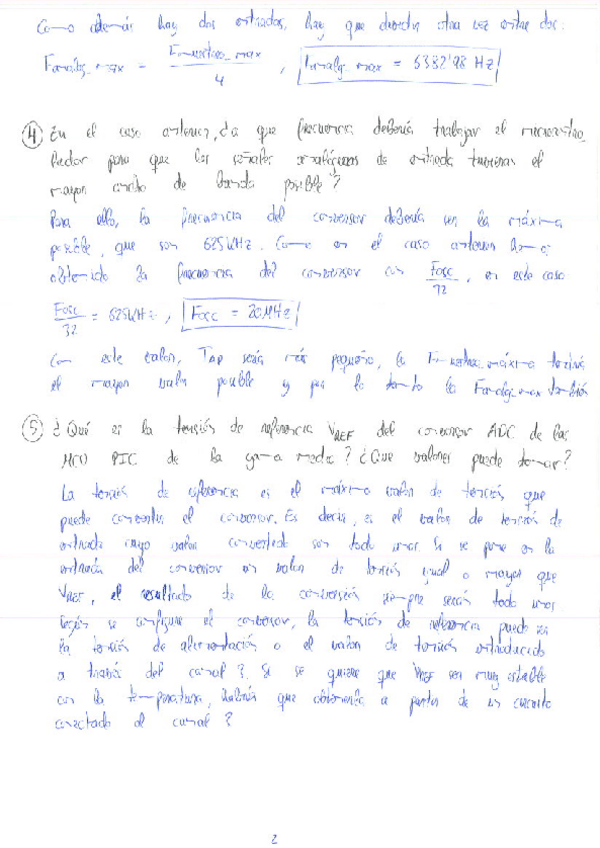 Como además hay dos entradas, hay que dividir otra vez entre dos:
Fanalg_max = Fmuestreo_max / 4 , Fanalg_max = 6382'98 Hz
④ En el caso anterior, ¿a que frecuencia debería trabajar el microcontro
lador para que las señales analógicas de entrada tuvieran el
mayor ancho de banda posible?
Para ello, la frecuencia del conversor debería ser la máxima
posible, que son 625kHz. Como en el caso anterior hemos
obtenido la frecuencia del conversor con Fosc / 32, en este caso
Fosc / 32 = 625kHz, Fosc = 20MHz
Con este valor, TAD será más pequeño, la Fmuestreo máxima tendrá
el mayor valor posible y por lo tanto la Fanalg_max también
⑤ ¿Qué es la tensión de referencia VREF del conversor ADC de los
MCU PIC de la gama media? ¿Que valores puede tomar?
La tensión de referencia es el máximo valor de tensión que
puede convertir el conversor. Es decir, es el valor de tensión de
entrada cuyo valor convertido son todo unos. Si se pone en la
entrada del conversor un valor de tensión igual o mayor que
VREF, el resultado de la conversión siempre serán todo unos.
Según se configure el conversor, la tensión de referencia puede ser
la tensión de alimentación o el valor de tensión introducido
a través del canal 3. Si se quiere que VREF sea muy estable
con la temperatura, habría que obtenerla a partir de un circuito
conectado al canal 3
2